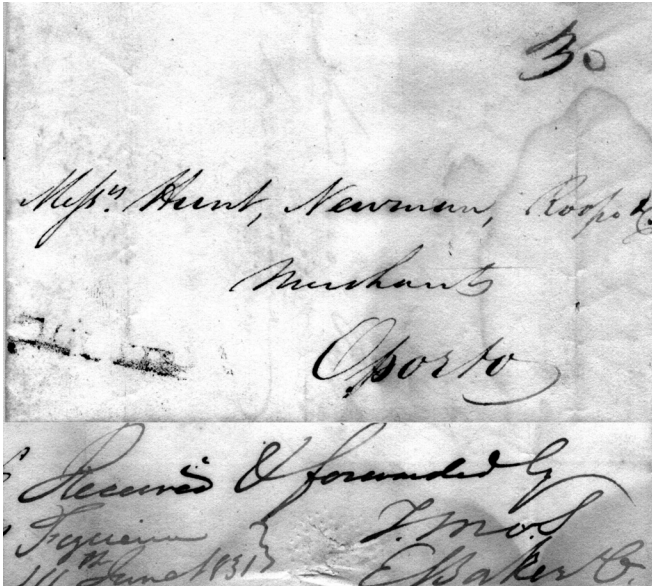 30
Messrs. Hunt, Newman, Roope & Co
Merchants
Oporto
Received & forwarded by
Figueira
11th June 1831
E Baker & Co